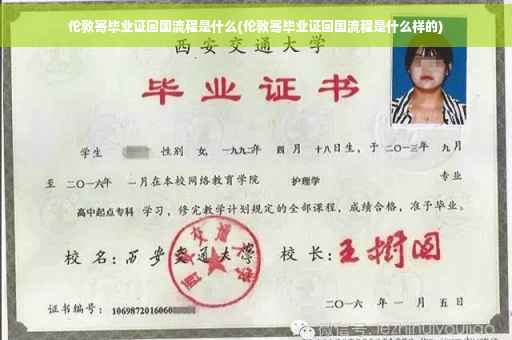 伦敦寄毕业证回国流程是什么(伦敦寄毕业证回国流程是什么样的)
西安交通大学
毕业证书
学生 性别 女, 一九九二年 四月 十八日生, 于二〇一三年 九月
至 二〇一六年 一月在本校网络教育学院 护理学 专业
高中起点专科 学习, 修完教学计划规定的全部课程, 成绩合格, 准予毕业。
校名: 西安交通大学 校长: 王树国
西安交通大学
证书编号: 1069872016060
二〇一六年 一月五日
微信号: jezhihuiyoujiao